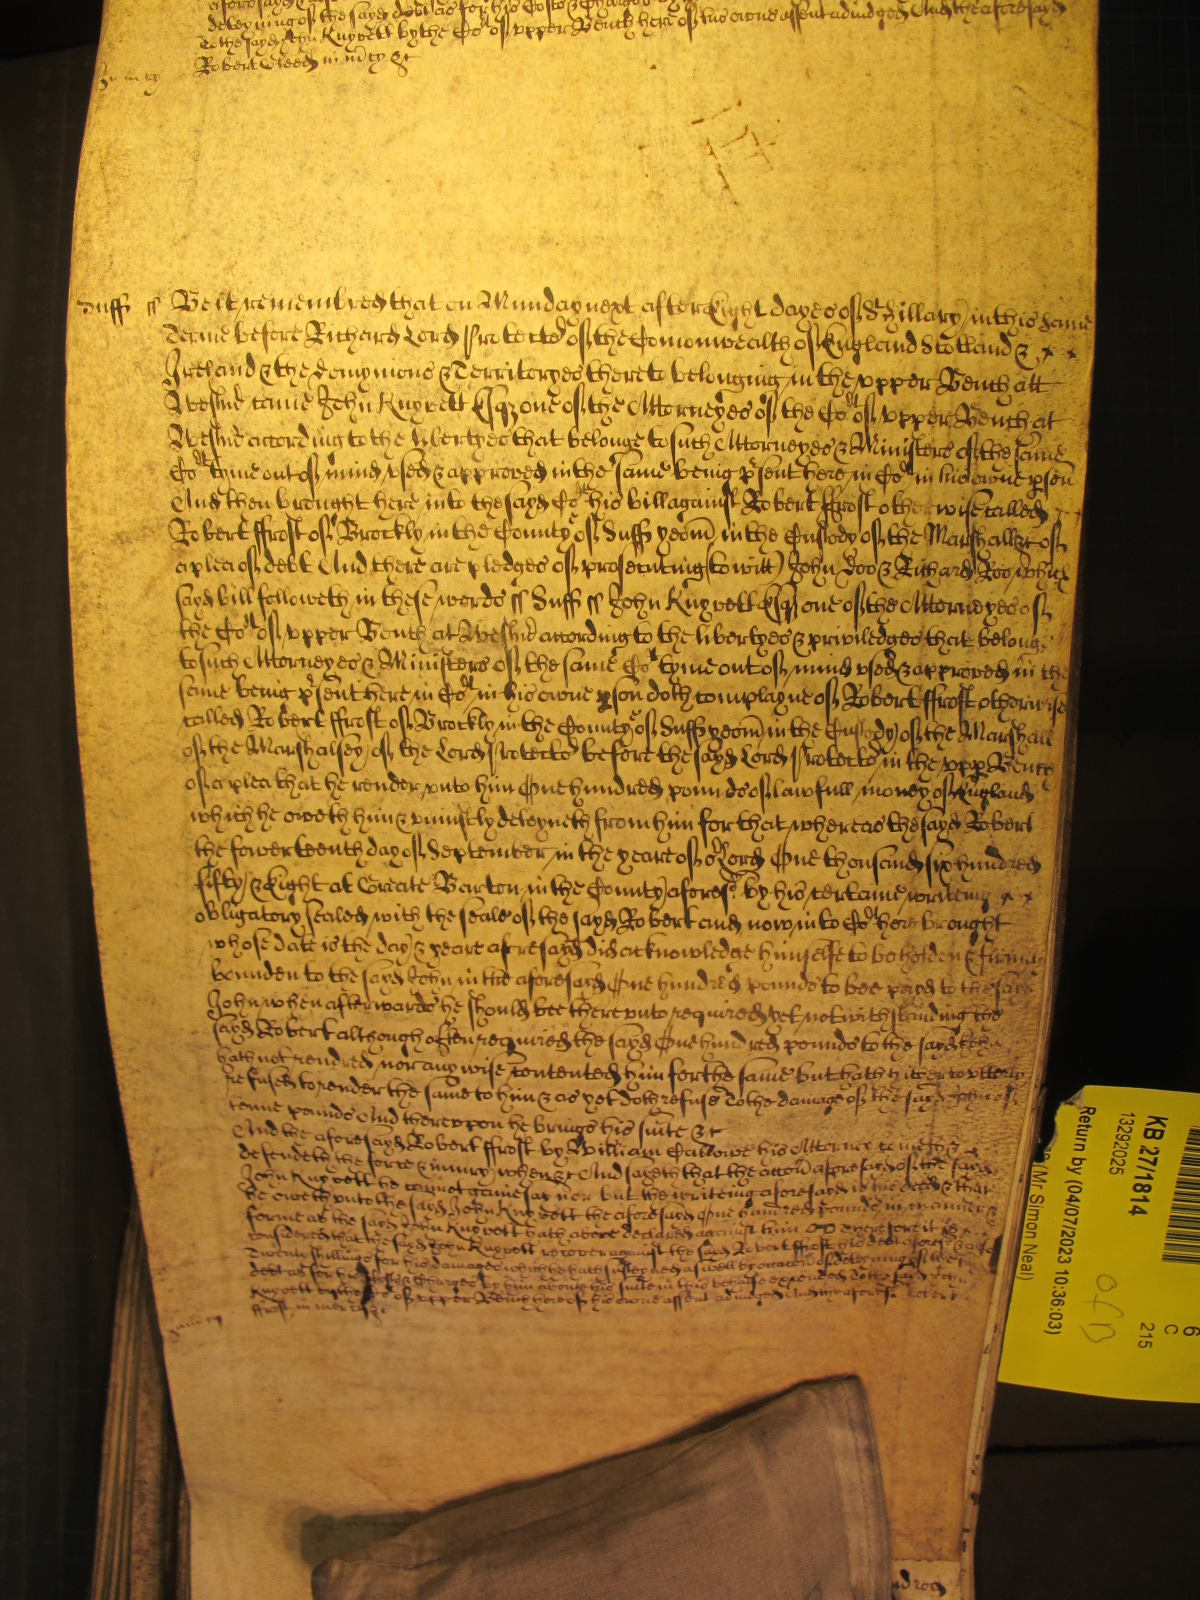 deteyning of the sayd debt as for his Costs & Charges
To the sayd John Knyvett by the Cort of upper Bench here of his owne assent adiudged And the aforesayd
Robert in mcy &c
In mcy
Suff ss Be it remembred that on Munday next after Eight dayes of St Hillary in this same
Terme before Richard Lord Protector of the Comonwealth of England Scotland &
Ireland & the Domynions & Territoryes thereto belonging in the upper Bench att
Westmr came John Knyvett Esqr one of the Attorneyes of the Cort of upper Bench at
Westmr according to the libertyes that belonge to such Attorneyes & Ministers of the same
Cort tyme out of mind used & approved in the same being present here in Cort in his owne pson
And then brought here into the sayd Cort his bill against Robert ffrost otherwise called
Robert ffrost of Brockly in the County of Suff yeom in the Custody of the Marshall &c of
a plea of debt And there are pledges of prosecuting (to witt) John Doo & Richard Roo which
sayd bill followeth in these words ss Suff ss John Knyvett Esqr one of the Attorneyes of
the Cort of upper Bench at Westmr according to the libertyes & priviledges that belong
to such Attorneyes & Ministers of the same Cort tyme out of mind used & approved in the
same being present here in Cort in his owne pson doth complayne of Robert ffrost otherwise
called Robert ffrost of Brockly in the County of Suff yeom in the Custody of the Marshall
of the Marshalsey of the Lord Protector before the sayd Lord Protector in the upp Bench
of a plea that he render unto him One hundred pounds of lawfull money of England
which he oweth him & uniustly deteyneth from him for that whereas the sayd Robert
the fowerteenth day of September in the yeare of or Lord One thousand six hundred
fifty & Eight at Greate Barton in the County aforesd by his certaine writeing
obligatory sealed with the seale of the sayd Robert and now into Cort here brought
whose date is the day & yeare aforesayd did acknowledge himselfe to be holden & firmely
bounden to the sayd John in the aforesayd One hundred pounds to bee payd to the sayd
John when afterwards he should bee thereunto required yet notwithstanding the
sayd Robert although often required the sayd One hundred pounds to the sayd John
hath not rendred nor any wise contented him for the same but hath hitherto utterly
refused to render the same to him & as yet doth refuse To the damage of the sayd John of
tenne pounds And thereupon he brings his suite &c
And the aforesayd Robert ffrost by William Callowe his Attorney cometh &
defendeth the force & iniury when &c And sayeth that the accon aforesayd of the sayd
John Knyvett he cannot gainesay nor but the writeing aforesayd is his deed & that
he oweth unto the sayd John Knyvett the aforesayd One hundred pounds in manner &
forme as the sayd John Knyvett hath above declared against him Therefore it is
considered that the sayd John Knyvett recover against the sayd Robert ffrost his debt aforesd &
Twenty shillings for his damages which he hath susteyned aswell by occasion of deteyning of the sayd
debt as for his Costs & Charges by him about his suite in this behalfe expended To the sayd John
Knyvett by the Cort of upper Bench here of his owne assent adiudged And the aforesd Robert
ffrost in mercy &c
In mercy
KB 27/1814
13292025
Return by (04/07/2023 10:36:03)
(Mr. Simon Neal)
6
C
215